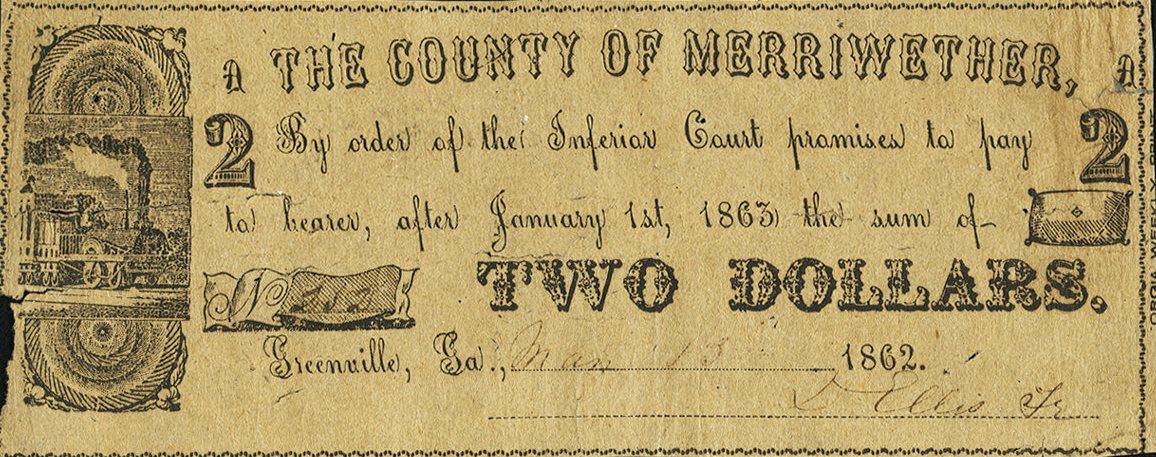 A THE COUNTY OF MERRIWETHER, A
2 By order of the Inferior Court promises to pay 2
to bearer, after January 1st, 1863 the sum of
No 252 TWO DOLLARS.
Greenville, Ga., Mar 13 1862.
D Ellis Tr